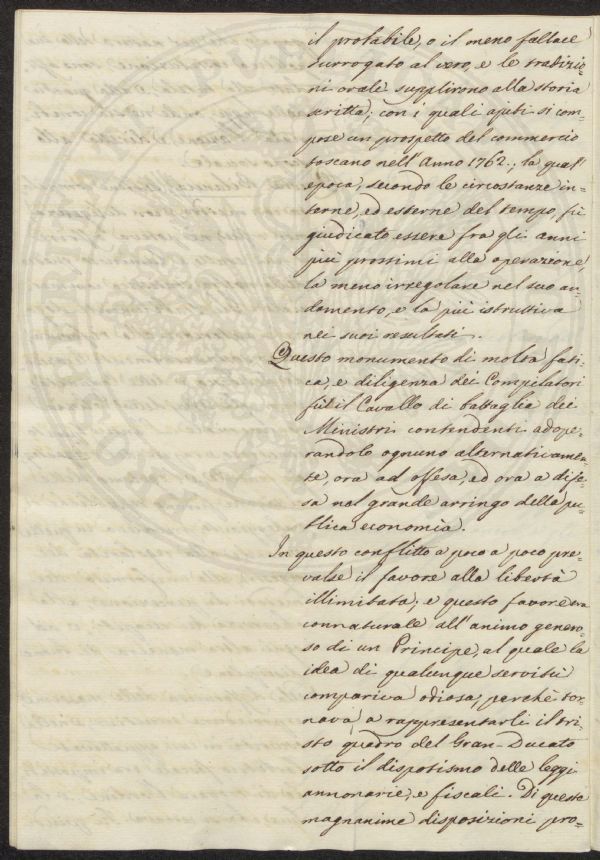 il probabile, o il meno fallace
surrogato al vero, e le tradizio-
ni orale supplirono alla storia
scritta; con i quali ajuti si com-
pose un prospetto del commercio
toscano nell'Anno 1762.; la qual'
epoca, secondo le circostanze in-
terne, ed esterne del tempo, fù
giudicato essere fra gli anni
più prossimi alla operazione,
la meno irregolare nel suo an-
damento, e la più istruttiva
nei suoi resultati.
Questo monumento di molta fati-
ca, e diligenza dei Compilatori
fù il Cavallo di battaglia dei
Ministri contendenti adope-
randolo ognuno alternativamen-
te, ora ad offesa, ed ora a dife-
sa nel grande arringo della pu-
blica economia.
In questo conflitto a poco a poco pre-
valse il favore alla libertà
illimitata; e questo favore era
connaturale all'animo genero-
so di un Principe, al quale la
idea di qualunque servitù
compariva odiosa, perchè tor-
nava a rappresentarli il tri-
sto quadro del Gran-Ducato
sotto il dispotismo delle leggi
annonarie, e fiscali. Di queste
magnanime disposizioni pro-